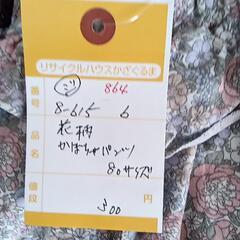 リサイクルハウスかざぐるま
番号 ミツ 864
8-615 6
品名 花柄
かぼちゃパンツ
80サイズ
値段 300 円